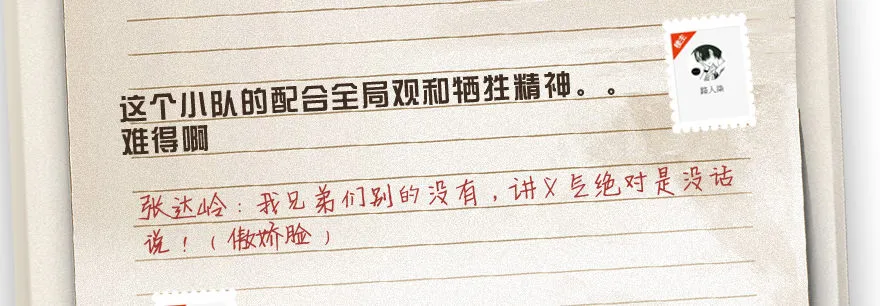 这个小队的配合全局观和牺牲精神。。
难得啊
楼主
路人柒
张达岭：我兄弟们别的没有，讲义气绝对是没话
说！（傲娇脸）